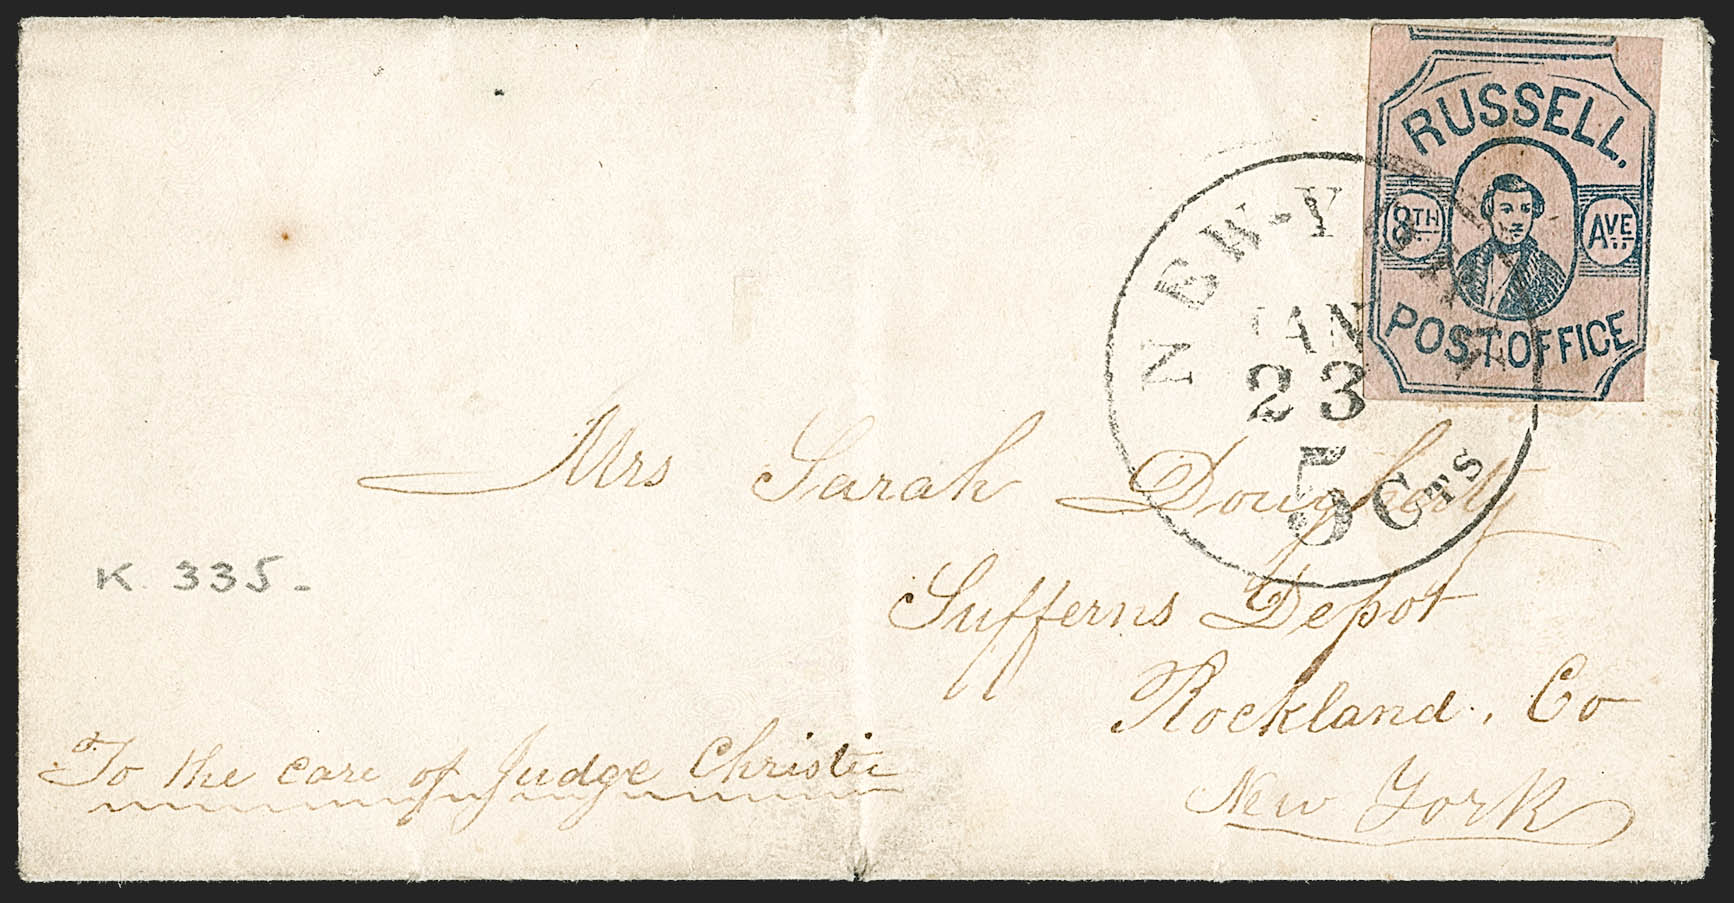 RUSSELL.
8TH AVE
POST OFFICE
NEW-Y
JAN
23
5 Cts
Mrs Sarah Dougherty
Sufferns Depot
Rockland. Co
New York
K. 335-
To the care of Judge Christie